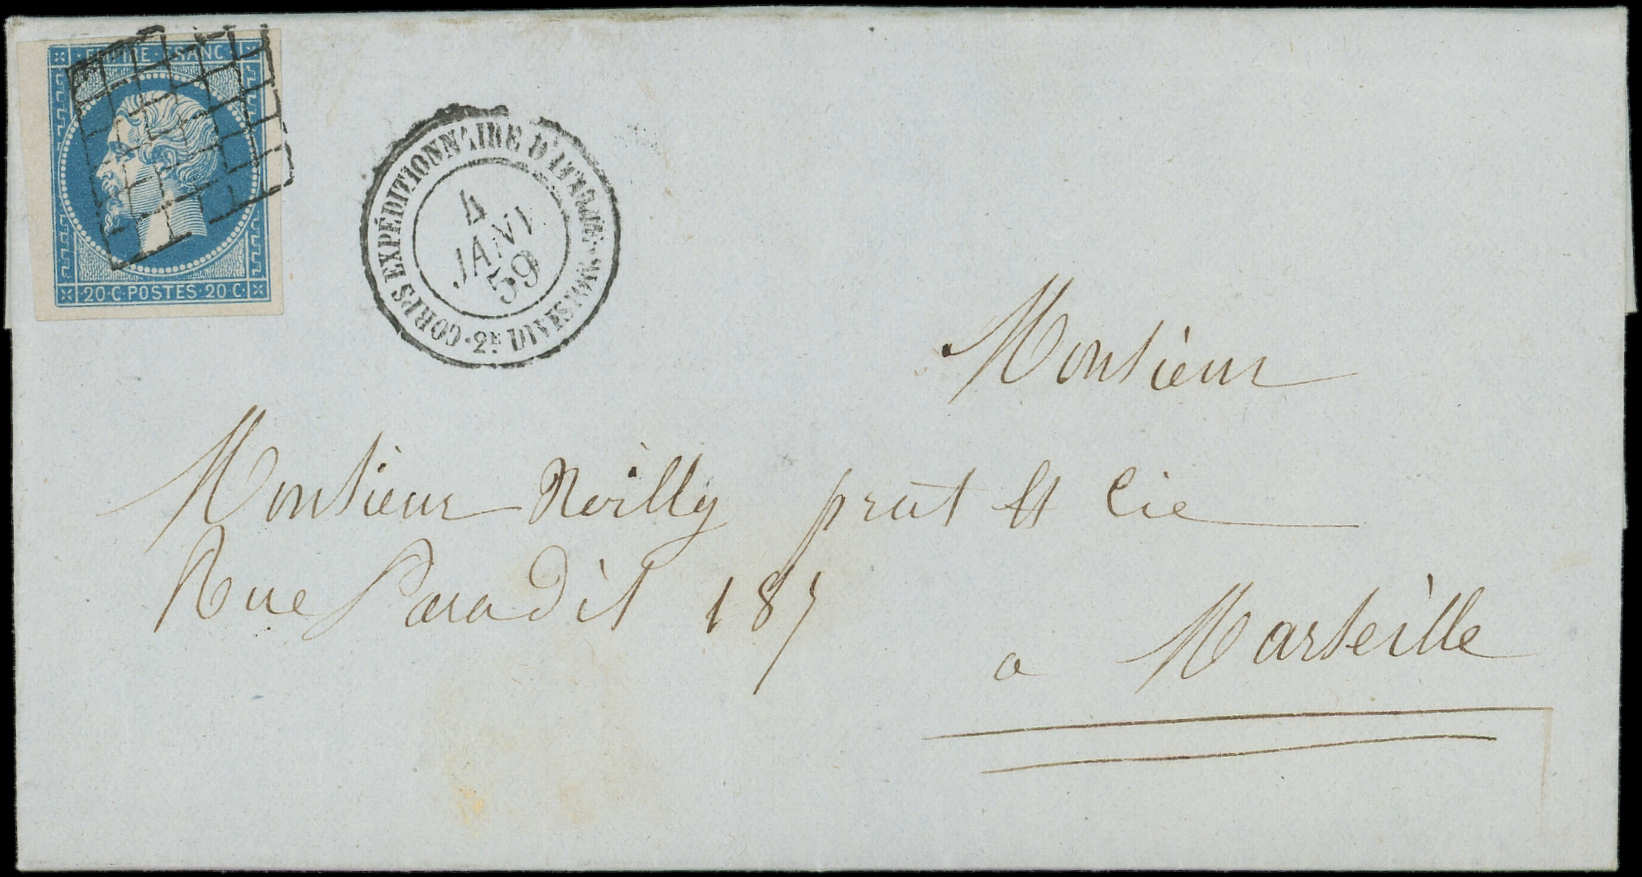 EMPIRE FRANC
20·C·POSTES·20·C·
CORPS EXPÉDITIONNAIRE D'ITALIE
4
JANV.
59
2E DIVISION
Monsieur
Monsieur Noilly prat & Cie
Rue Paradis 187
a Marseille